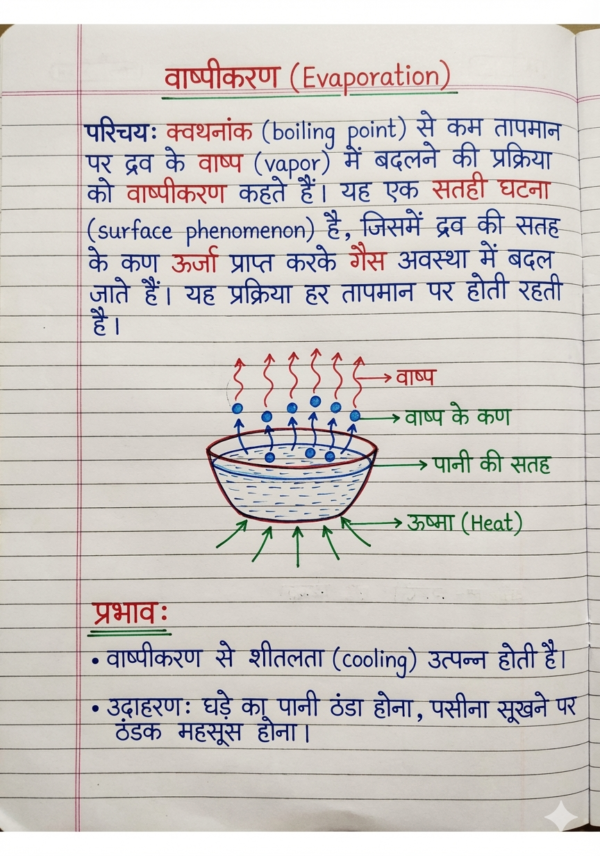 वाष्पीकरण (Evaporation)
परिचयः क्वथनांक (boiling point) से कम तापमान
पर द्रव के वाष्प (vapor) में बदलने की प्रक्रिया
को वाष्पीकरण कहते हैं। यह एक सतही घटना
(surface phenomenon) है, जिसमें द्रव की सतह
के कण ऊर्जा प्राप्त करके गैस अवस्था में बदल
जाते हैं। यह प्रक्रिया हर तापमान पर होती रहती
है।
वाष्प
वाष्प के कण
पानी की सतह
ऊष्मा (Heat)
प्रभावः
• वाष्पीकरण से शीतलता (cooling) उत्पन्न होती है।
• उदाहरणः घड़े का पानी ठंडा होना, पसीना सूखने पर
ठंडक महसूस होना।